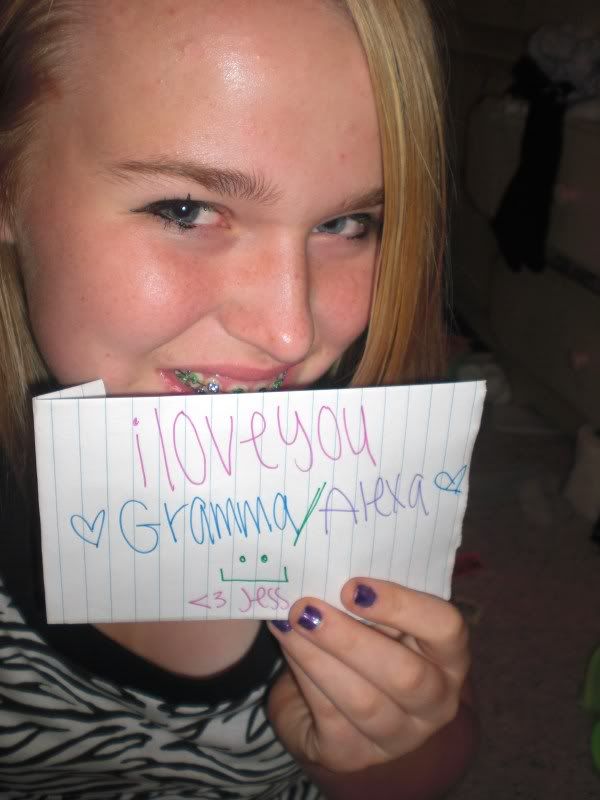 i love you
Gramma/Alexa
<3 Jess